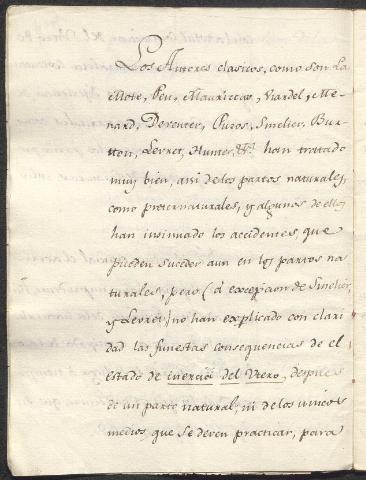 Los Autores clasicos, como son La
Mote, Peu, Mauriceau, Viardel, Me-
nard, Deventer, Puzos, Smelier, Bur-
tton, Levret, Hunter, &a. han trattado
muy bien, asi de los partos naturales,
como preternaturales, y algunos de ellos
han insinuado los accidentes, que
pueden suceder aun en los partos na
turales, pero (á excepcion de Smelier,
y Levret) no han explicado con clari
dad las funestas consequencias de el
estado de inercia del Utero, despues
de un parto natural, ni de los unicos
medios, que se deven practicar, para